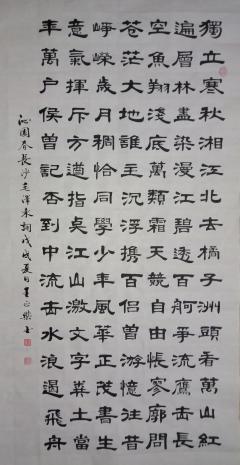 獨立寒秋湘江北去橘子洲頭看萬山紅
遍層林盡染漫江碧透百舸爭流鷹击長
空魚翔淺底萬類霜天競自由悵寥廓問
蒼茫大地誰主沉浮携百侣曾游憶往昔
崢嶸歲月稠恰同學少年風華正茂書生
意氣揮斥方遒指奌江山激文字糞土當
年萬户侯曾記否到中流击水浪遏飛舟
沁園春長沙毛澤東詞戊戌夏月